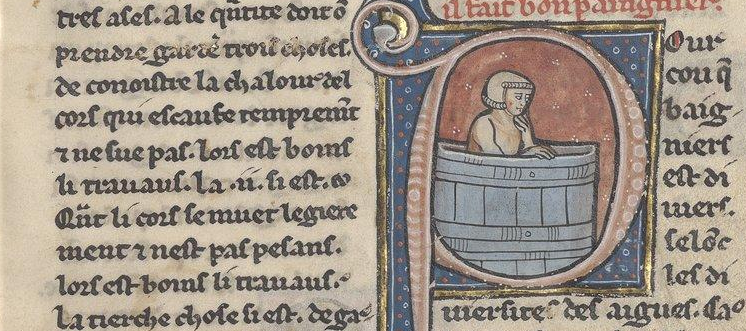 tres ases. A le q̃ntite doit õ
prendre garde trois choses.
de conoistre la chalour del
cors qui escaufe tempremt̃
⁊ ne sue pas. lors est boins
li trauaus. la .ii. si est.
Qñt li cors se muet legiere
ment ⁊ nest pas pesans.
lors est boins li trauaus.
la tierche chose si est. de ga
il fait bon baingnier.
Pour
cou q̃
baig
niers
est di
uers.
selõc
les di
uersites des aigues. Ca